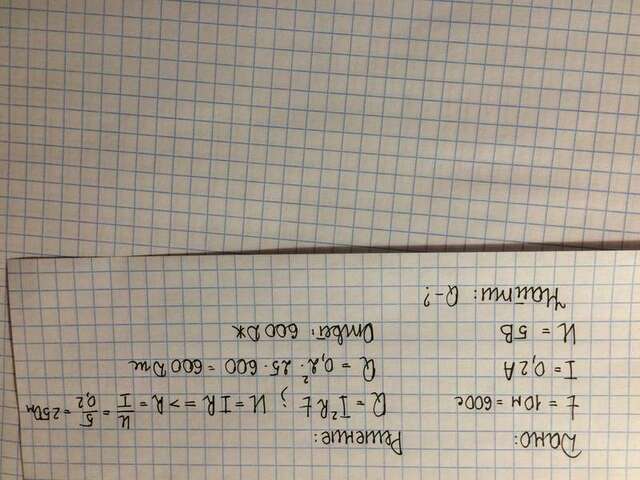 Дано:
t = 10м = 600с
I = 0,2А
U = 5В
Найти: Q-?
Решение:
Q = I²Rt ; U = IR => R = U/I = 5/0,2 = 25Ом
Q = 0,2² · 25 · 600 = 600 Дж
Ответ: 600 Дж